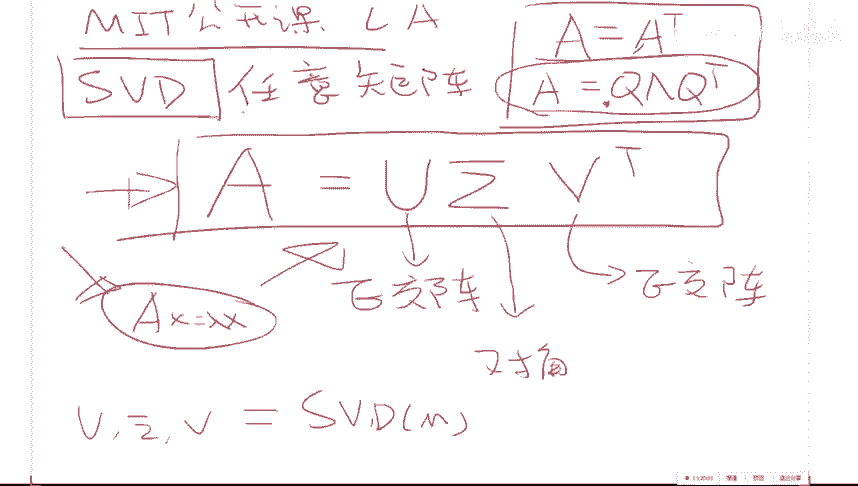 MIT公开课 LA
SVD 任意矩阵
A = Aᵀ
A = QΛQᵀ
A = U Σ Vᵀ
正交阵
正交阵
对角
Ax=λx
U, Σ, V = SVD(M)